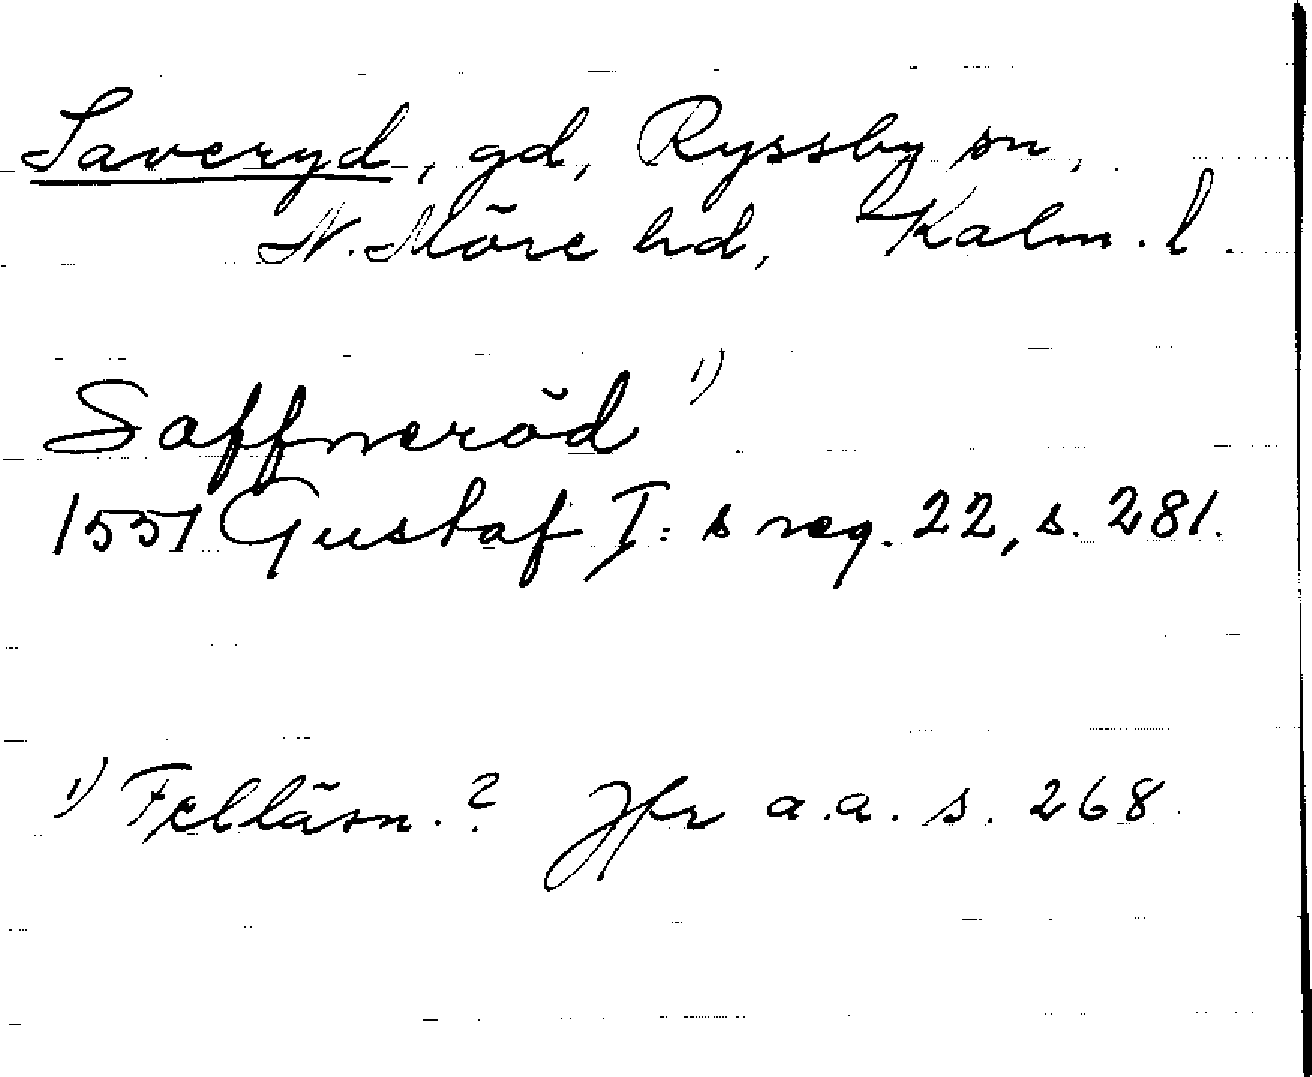 Saveryd, gd, Ryssby sn,
N. Möre hd, Kalm. l.
Saffneröd 1)
1551 Gustaf I:s reg. 22, s. 281.
1) Felläsn.? Jfr a.a. s. 268.